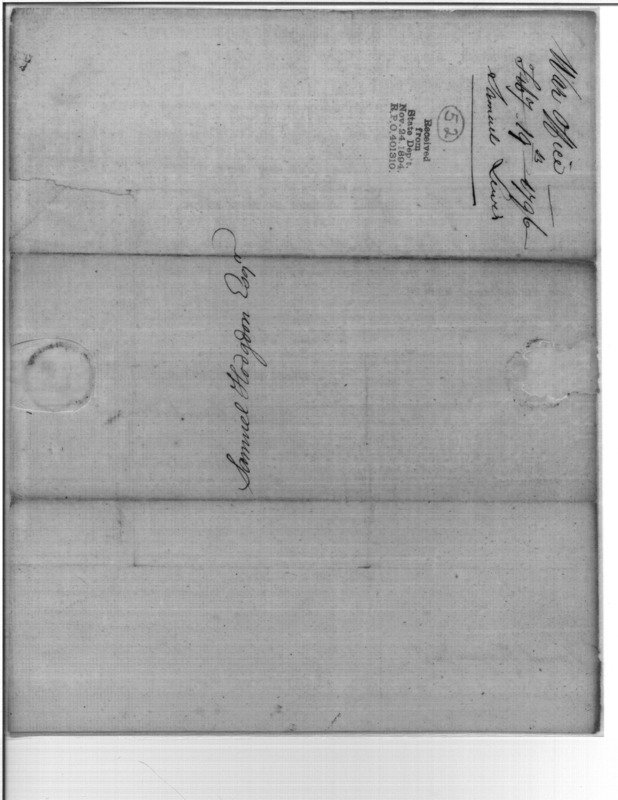 War Office
Feby 19th 1796
Samuel Lewis
52
Received
from
State Dep't.
Nov. 24, 1894.
R.P.O. 401310.
Samuel Hodgdon Esqr